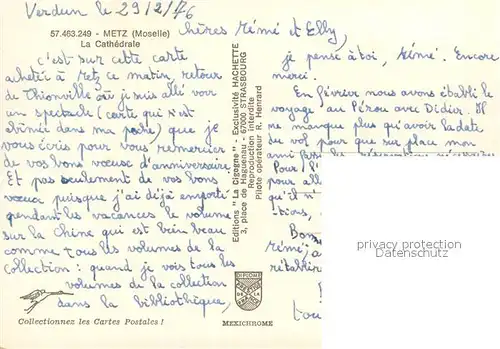 Verdun le 29/2/76
57.463.249 - METZ (Moselle)
La Cathédrale
chères Mémé et Elly,
C'est sur cette carte
achetée à Metz ce matin, retour
de Thionville où je suis allé voir
un spectacle (carte qui s'est
abîmée dans ma poche) que je
vous écris pour vous remercier
de vos bons vœux d'anniversaire.
Et pas seulement de vos bons
vœux puisque j'ai déjà emporté
pendant les vacances le volume
sur la Chine qui est bien beau
comme tous les volumes de la
collection : quand je vois tous les
volumes de la collection
dans la bibliothèque,
Collectionnez les Cartes Postales !
Editions "La Cigogne" - Exclusivité HACHETTE
3, place de Haguenau - 67000 STRASBOURG
Reproduction interdite
Pilote opérateur R. Henrard
DIPLOME
MEXICHROME
je pense à toi, Mémé. Encore
merci.
En février nous avons établi le
voyage au Pérou avec Didier. Il
ne manque plus qu'avoir la date
du vol pour que sur place mon
Pour l'
pour all
qu'il n'
tions,
Bonn
Mémé, a
rétablir
tou
privacy protection
Datenschutz